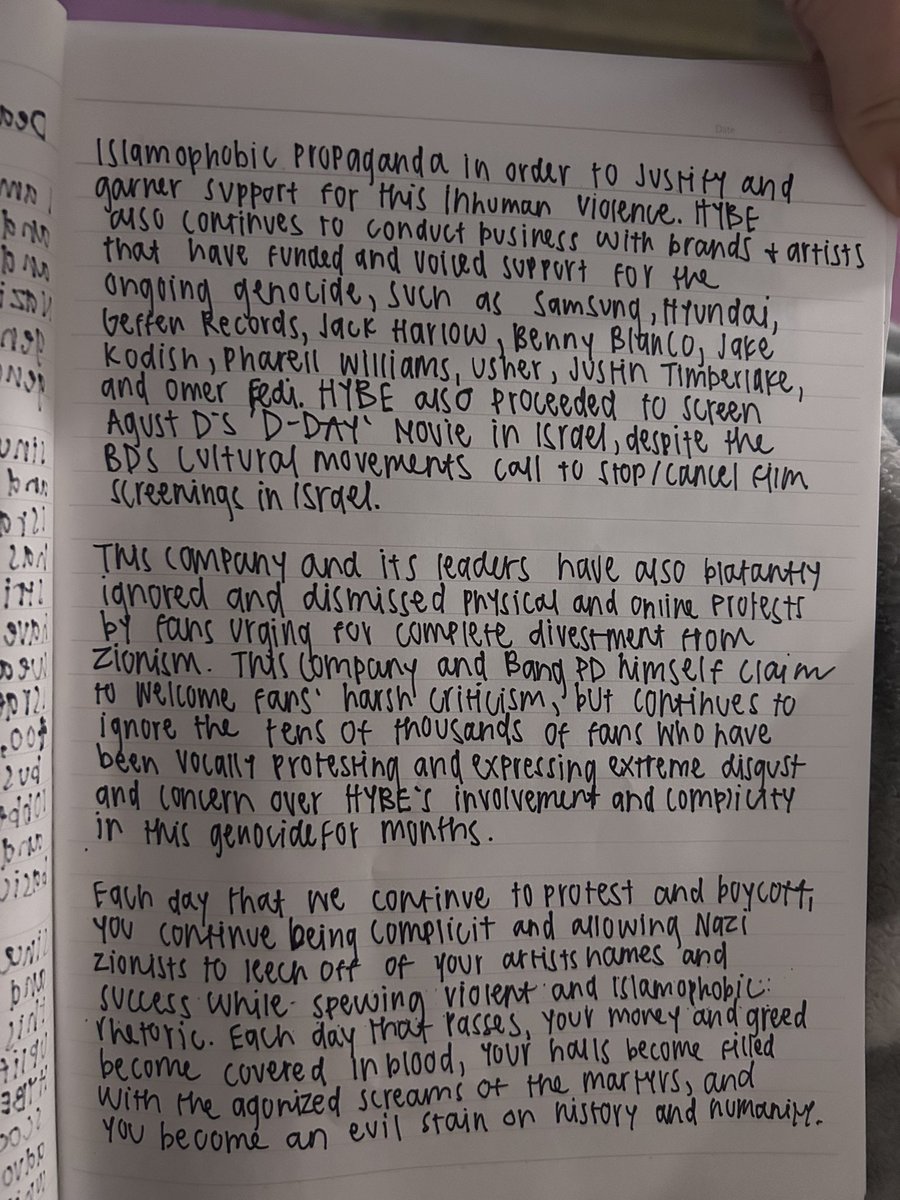 Date
Islamophobic propaganda in order to justify and
garner support for this inhuman violence. HYBE
also continues to conduct business with brands + artists
that have funded and voiced support for the
ongoing genocide, such as Samsung, Hyundai,
Geffen Records, Jack Harlow, Benny Blanco, Jake
Kodish, Pharell Williams, Usher, Justin Timberlake,
and Omer Fedi. HYBE also proceeded to screen
Agust D's 'D-DAY' Movie in Israel, despite the
BDS cultural movements call to stop/cancel film
screenings in Israel.
This company and its leaders have also blatantly
ignored and dismissed physical and online protests
by fans urging for complete divestment from
Zionism. This company and Bang PD himself claim
to welcome fans' harsh criticism, but continues to
ignore the tens of thousands of fans who have
been vocally protesting and expressing extreme disgust
and concern over HYBE's involvement and complicity
in this genocide for months.
Each day that we continue to protest and boycott,
you continue being complicit and allowing Nazi
zionists to leech off of your artists names and
success while spewing violent and Islamophobic
rhetoric. Each day that passes, your money and greed
become covered in blood, your halls become filled
with the agonized screams of the martyrs, and
you become an evil stain on history and humanity.